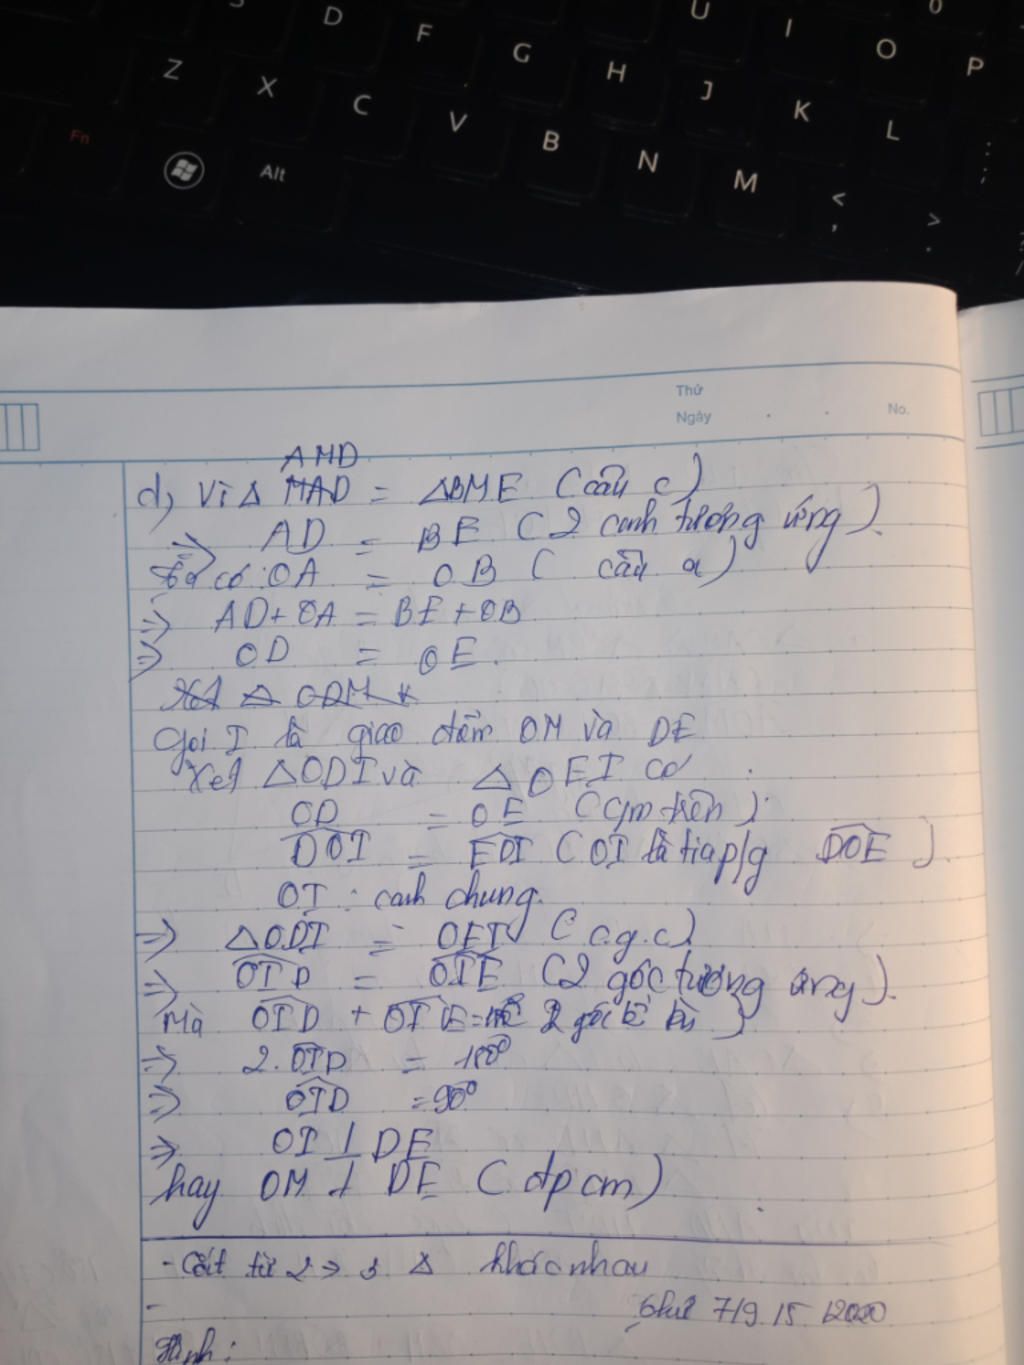 S D F G H U I O 0 P
Z X C V B N M J K L ; :
Fn Alt < , > .
Thứ
Ngày . . No.
AMD
d) Vì Δ MAD = ΔBME (câu c)
=> AD = BE (2 cạnh tương ứng).
Ta có: OA = OB (câu a)
=> AD + OA = BE + OB
=> OD = OE.
Xét Δ ODM
Gọi I là giao điểm OM và DE
Xét ΔODI và ΔOEI có
OD = OE (cm trên)
DOI = EOI (OI là tia p/g DOE).
OI : cạnh chung.
=> ΔODI = OEI (c.g.c)
=> OID = OIE (2 góc tương ứng).
Mà OID + OIE = 180° 2 góc kề bù)
=> 2.OID = 180°
=> OID = 90°
=> OI ⊥ DE
hay OM ⊥ DE (đpcm)
- Cắt từ 2 -> 3 Δ khác nhau
-
7/9 15 /2020
Hình: